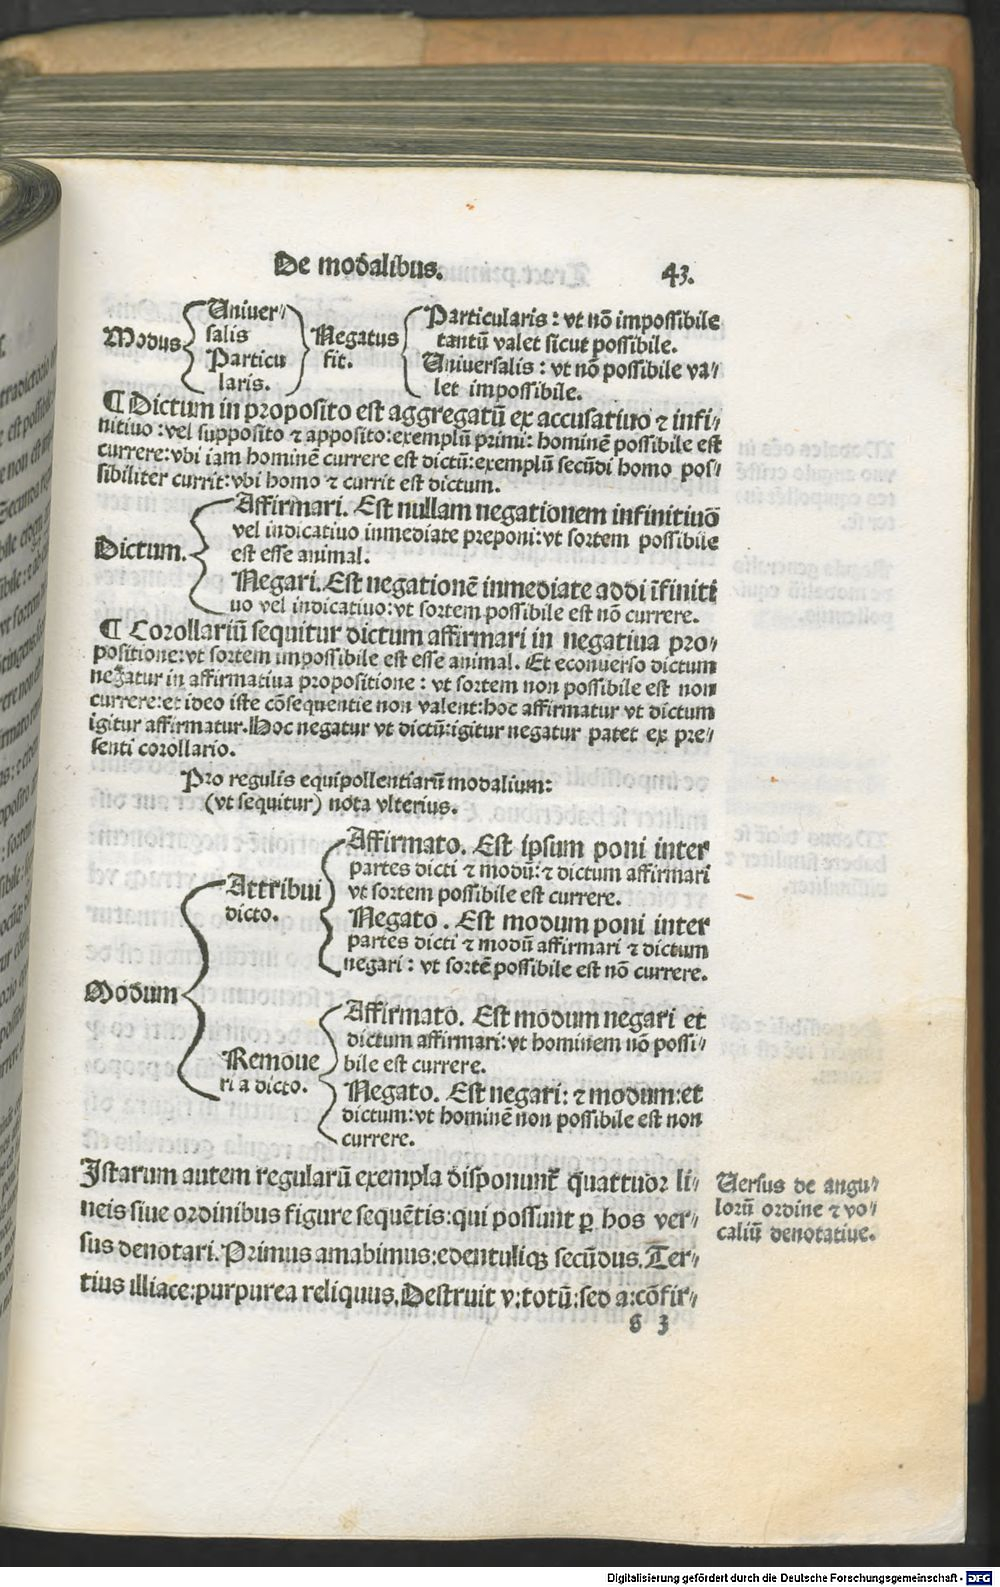 De modalibus. 43.
Modus
Univer⸗
salis
Particu
laris.
Negatus
fit.
Particularis : vt nō impossibile
tantū valet sicut possibile.
Universalis : vt nō possibile va⸗
let impossibile.
¶ Dictum in proposito est aggregatū ex accusatiuo ⁊ infi⸗
nitiuo : vel supposito ⁊ apposito : exemplū primi : hominē possibile est
currere : vbi iam hominē currere est dictū : exemplū secūdi homo pos⸗
sibiliter currit : vbi homo ⁊ currit est dictum.
Dictum.
Affirmari. Est nullam negationem infinitiuō
vel indicatiuo inmediate preponi : vt sortem possibile
est esse animal.
Negari. Est negationē inmediate addi īfiniti
uo vel indicatiuo : vt sortem possibile est nō currere.
¶ Corollariū sequitur dictum affirmari in negatiua pro⸗
positione : vt sortem impossibile est esse animal. Et econuerso dictum
negatur in affirmatiua propositione : vt sortem non possibile est non
currere : et ideo iste cōsequentie non valent : hoc affirmatur vt dictum
igitur affirmatur. Hoc negatur vt dictū : igitur negatur patet ex pre⸗
senti corollario.
Pro regulis equipollentiarū modalium :
(vt sequitur) nota vlterius.
Modum
Attribui
dicto.
Affirmato. Est ipsum poni inter
partes dicti ⁊ modū : ⁊ dictum affirmari
vt sortem possibile est currere.
Negato . Est modum poni inter
partes dicti ⁊ modū affirmari ⁊ dictum
negari : vt sortē possibile est nō currere.
Remoue
ri a dicto.
Affirmato. Est modum negari et
dictum affirmari : vt hominem nō possi⸗
bile est currere.
Negato. Est negari : ⁊ modum : et
dictum : vt hominē non possibile est non
currere.
Istarum autem regularū exempla disponunt᷑ quattuor li⸗
neis siue ordinibus figure sequētis : qui possunt ꝑ hos ver⸗
sus denotari. Primus amabimus : edentuliqꝫ secūdus. Ter⸗
tius illiace : purpurea reliquus. Destruit v : totū : sed a : cōfir⸗
Versus de angu⸗
lorū ordine ⁊ vo⸗
caliū denotatiue.
g 3
Digitalisierung gefördert durch die Deutsche Forschungsgemeinschaft - DFG